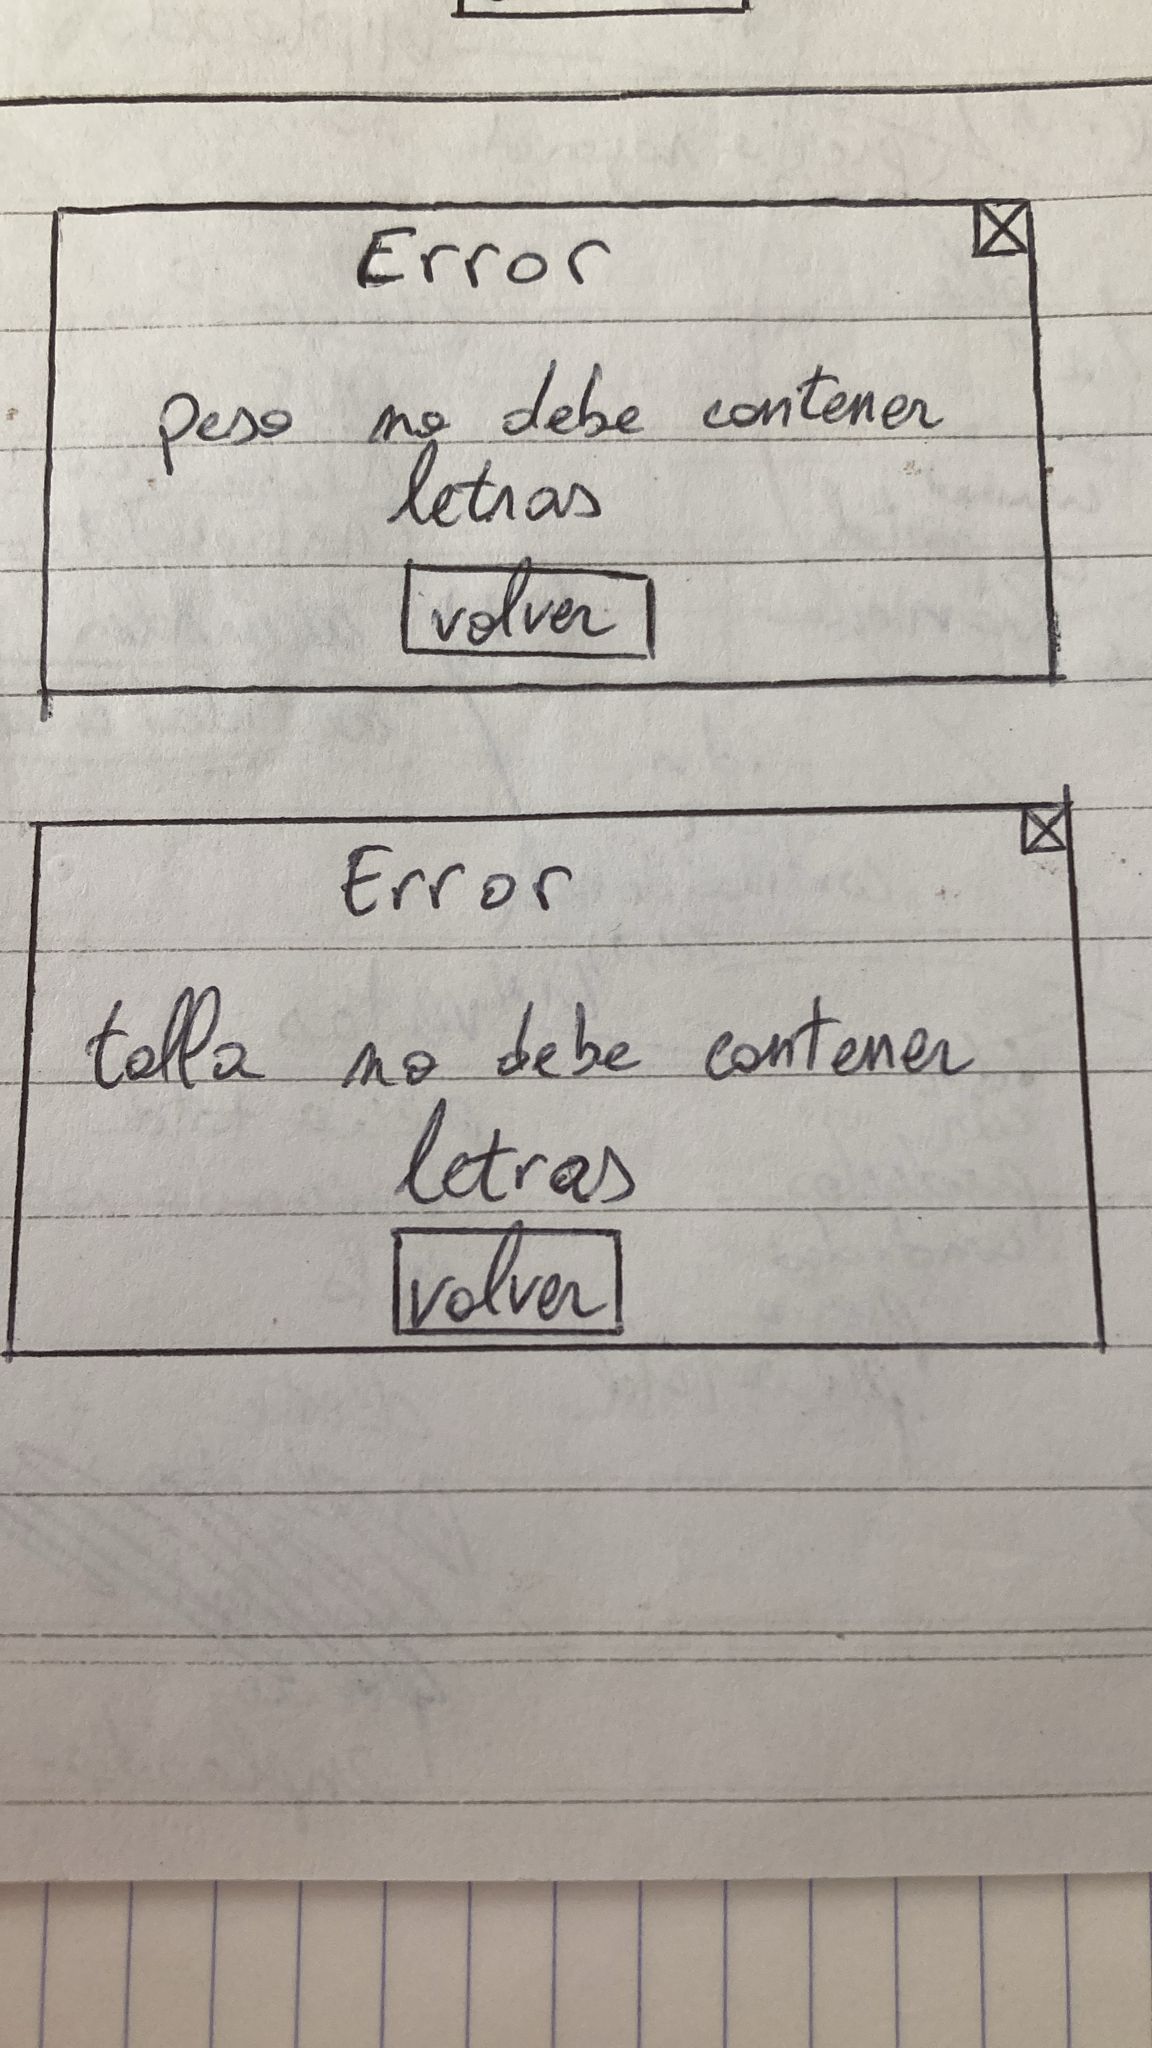 Error
peso no debe contener
letras
volver
Error
talla no debe contener
letras
volver